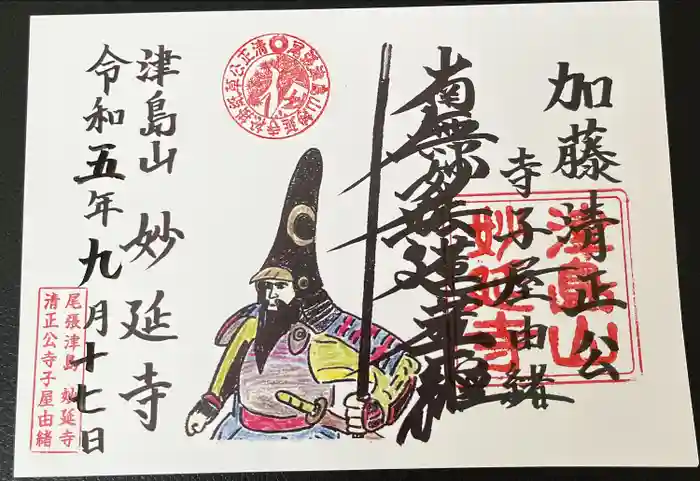 加藤清正公
寺子屋由緒
津島山
妙延寺
南無妙法蓮華経
津島山 妙延寺
令和五年九月十七日
尾張津島 妙延寺
清正公寺子屋由緒